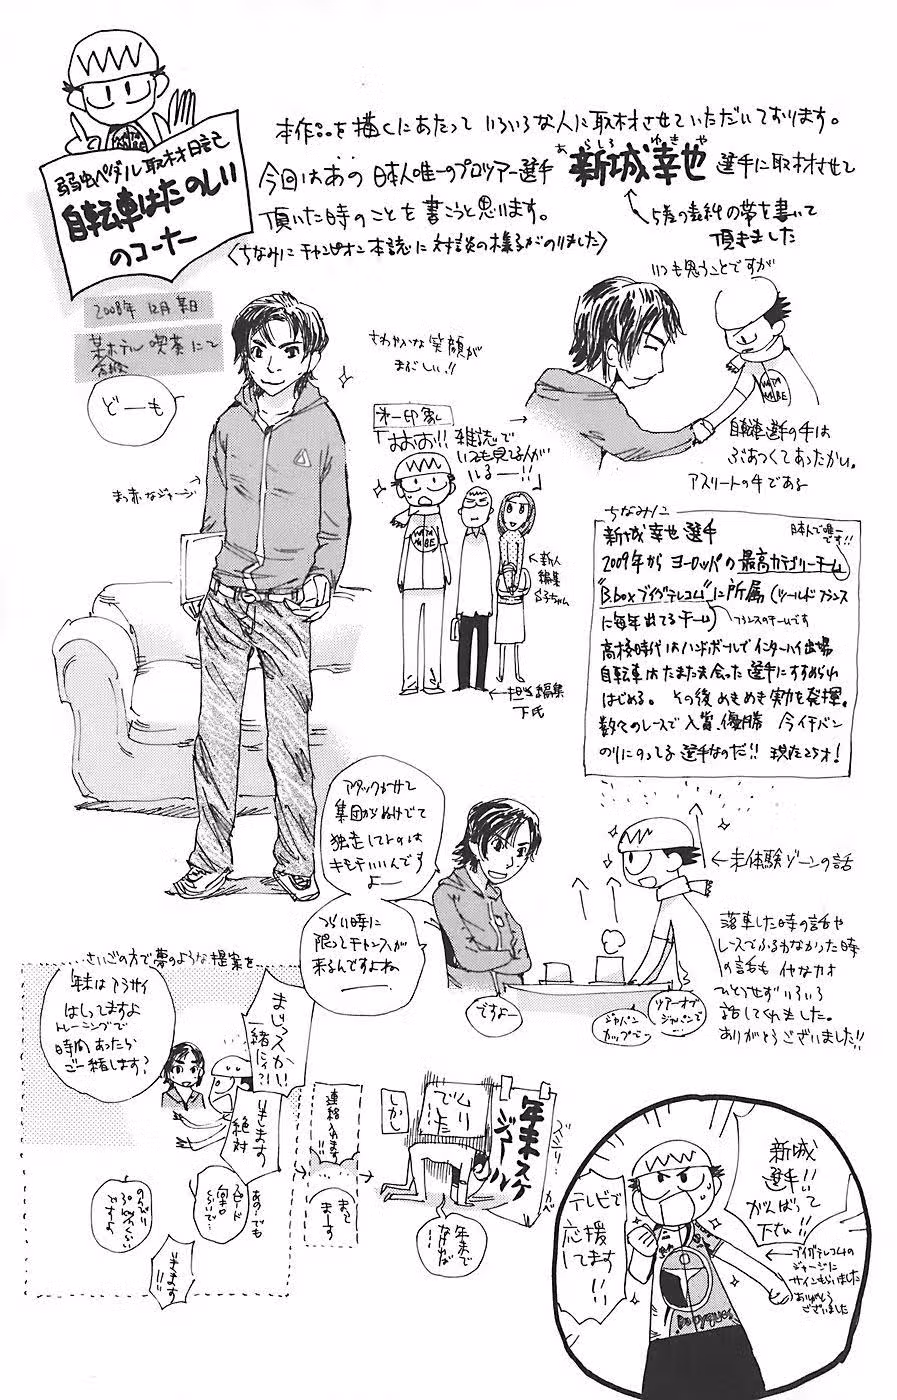 弱虫ペダル取材日記
自転車はたのしい
のコーナー
本作品を描くにあたって いろいろな人に取材させていただいております。
今回はあの 日本人唯一のプロツアー選手 新城幸也 選手に取材させて
あらしろ ゆきや
頂いた時のことを書こうと思います。
〈ちなみにチャンピオン本誌に対談の様子がのりました〉
5巻の表紙の帯を書いて
頂きました
2008年 12月 某日
某ホテル 喫茶にて
どーも
まっ赤なジャージ
さわやかな笑顔が
まぶしい!!
いつも思うことですが
WATA
NABE
自転車選手の手は
ぶあつくてあったかい。
アスリートの手である
第一印象
「おおお!! 雑誌で
いつも見てる人が
いるー!!」
WATA
NABE
新人
編集
担当編集
下氏
ちなみに
新城 幸也 選手
日本人で唯一
です!!
2009年から ヨーロッパの最高カテゴリーチーム
"Bboxブイグテレコム"に所属(ツールドフランス
に毎年出てるチーム)
フランスのチームです
高校時代はハンドボールでインターハイ出場
自転車はたまたま会った選手にすすめられ
はじめる。その後めきめき実力を発揮。
数々のレースで入賞、優勝 今イチバン
のりにのってる選手なのだ!! 現在25才!
アタックかけて
集団からぬけでて
独走してトルは
キモチいいんです
よー
つらい時に
限ってチャンスが
来るんですよね
未体験ゾーンの話
落車した時の話や
レースでふるわなかった時
の話も イヤなカオ
ひとつせず いろいろ
話してくれました。
ありがとうございました!!
ですよー
ジャパン
カップでー
ツアーオブ
ジャパンで
さいごの方で夢のような提案を
年末はアラサイ
はしってますよ
トレーニングで
時間あったら
ご一緒します?
まじっスかい!
一緒に!?
いきます
絶対
あ、でも
スピード
のんびり
30km/hくらい
ですよ
いきます
!!
連絡入れます
まって
まーす
しかし
ムリ
でした
年末スケ
ジュール
年末で
新城
選手!!
がんばって
下さい!!
テレビで
応援
してます
!!
ブイグテレコムの
ジャージに
サインもらいました
ありがとう
ございました